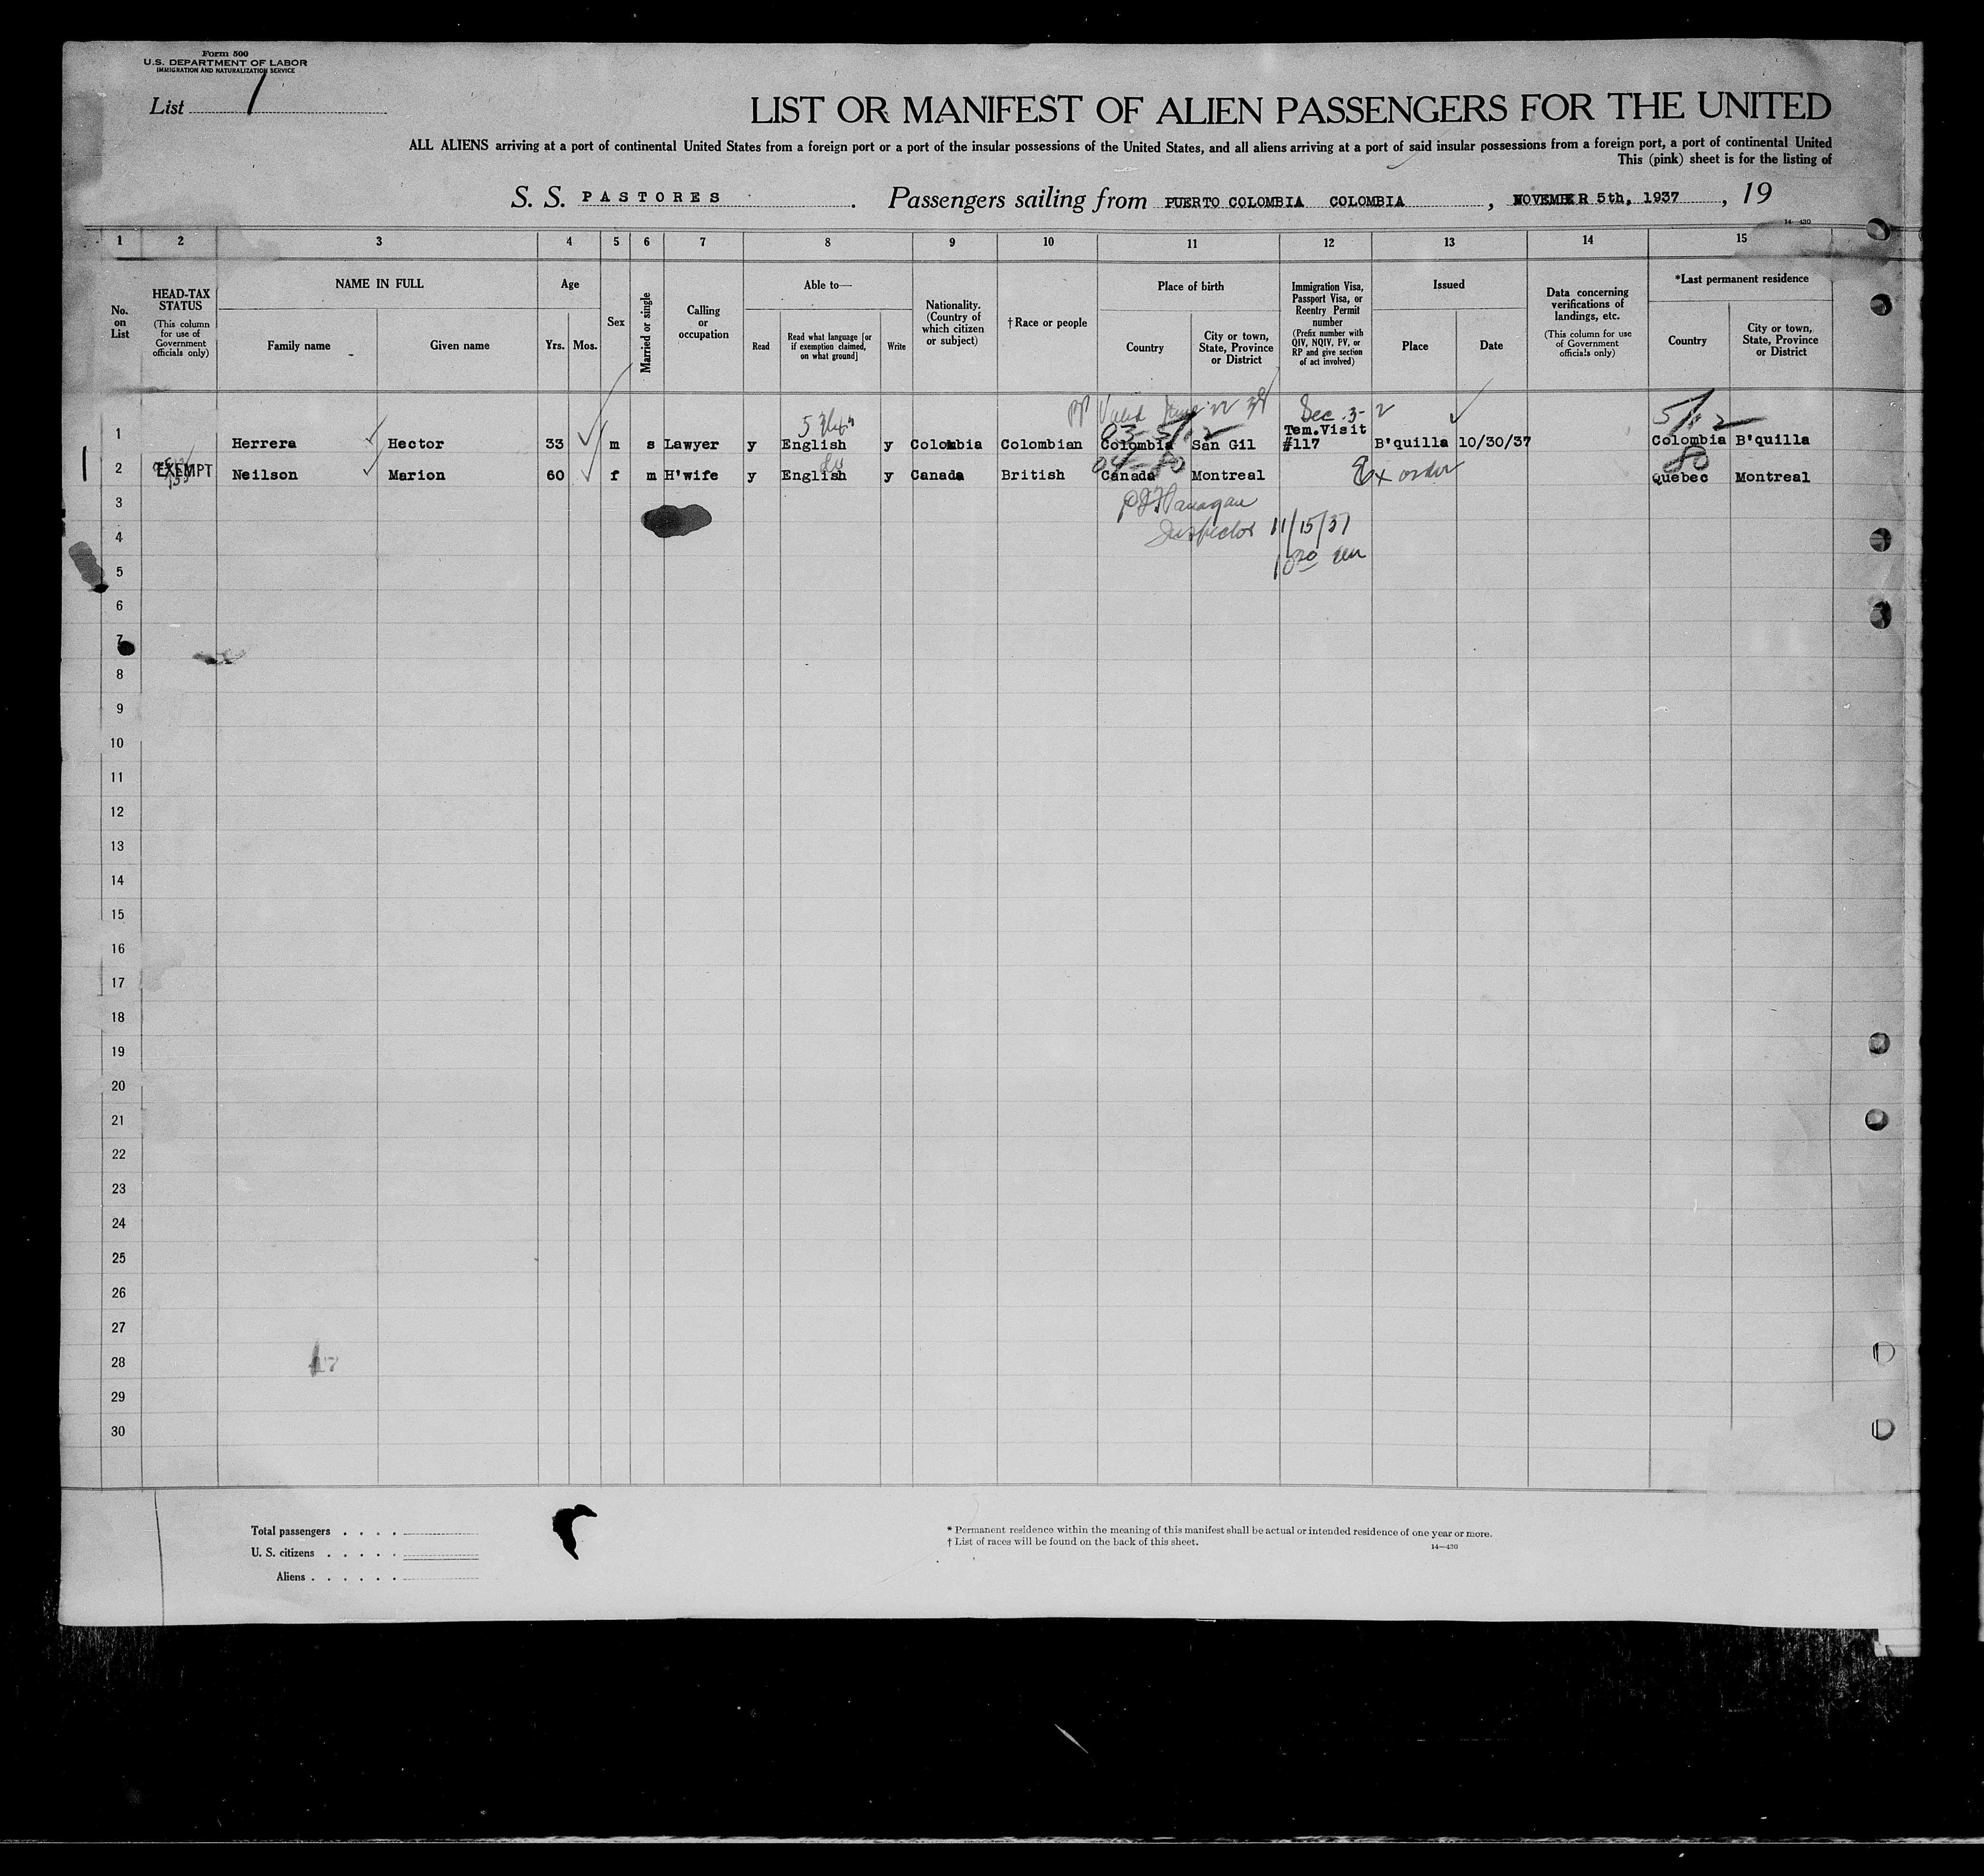 Form 500
U.S. DEPARTMENT OF LABOR
IMMIGRATION AND NATURALIZATION SERVICE
List 1
LIST OR MANIFEST OF ALIEN PASSENGERS FOR THE UNITED
ALL ALIENS arriving at a port of continental United States from a foreign port or a port of the insular possessions of the United States, and all aliens arriving at a port of said insular possessions from a foreign port, a port of continental United
This (pink) sheet is for the listing of
S. S. PASTORES. Passengers sailing from PUERTO COLOMBIA COLOMBIA, NOVEMBER 5th, 1937, 19
14—430
1 2 3 4 5 6 7 8 9 10 11 12 13 14 15
No. on List
HEAD-TAX STATUS (This column for use of Government officials only)
NAME IN FULL
Family name
Given name
Age
Yrs. Mos.
Sex
Married or single
Calling or occupation
Able to—
Read
Read what language [or if exemption claimed, on what ground]
Write
Nationality. (Country of which citizen or subject)
†Race or people
Place of birth
Country
City or town, State, Province or District
Immigration Visa, Passport Visa, or Reentry Permit number (Prefix number with QIV, NQIV, PV, or RP and give section of act involved)
Issued
Place
Date
Data concerning verifications of landings, etc. (This column for use of Government officials only)
*Last permanent residence
Country
City or town, State, Province or District
PP Valid June 22 38 Sec. 3-2
03-5/12 Tem.Visit 5/12
1 Herrera Hector 33 m s Lawyer y English y Colombia Colombian Colombia San Gil #117 B'quilla 10/30/37 Colombia B'quilla
04-80 80
2 EXEMPT Neilson Marion 60 f m H'wife y English y Canada British Canada Montreal Ex order Quebec Montreal
3
Flanagan
4 Inspector 11/15/37
5
6
7
8
9
10
11
12
13
14
15
16
17
18
19
20
21
22
23
24
25
26
27
28
29
30
Total passengers . . . .
U. S. citizens . . . . .
Aliens . . . . . .
* Permanent residence within the meaning of this manifest shall be actual or intended residence of one year or more.
† List of races will be found on the back of this sheet.
14—430